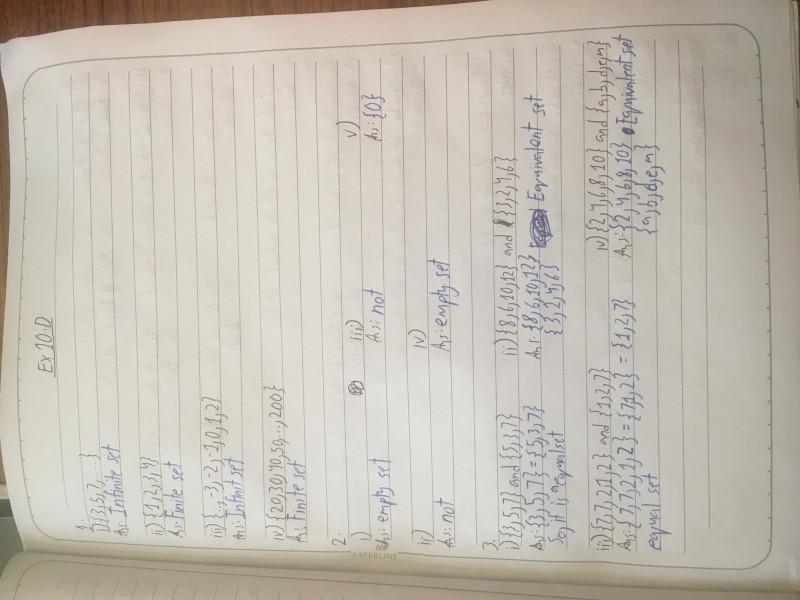 Ex 10.D
1.
i) {3,5,7,...}
Ans: Infinite set
ii) {1,2,3,4}
Ans: Finite set
iii) {...,-3,-2,-1,0,1,2}
Ans: Infinit set
iv) {20,30,40,50,...,200}
Ans: Finite set
2.
i)
Ans: empty set
iii)
Ans: not
v)
Ans: {0}
ii)
Ans: not
iv)
Ans: empty set
3.
i) {3,5,7} and {5,3,7}
Ans: {3,5,7} = {5,3,7}
So, it is a equal set
ii) {8,6,10,12} and {3,2,4,6}
Ans: {8,6,10,12} Equivalent set
{3,2,4,6}
iii) {7,7,2,1,2} and {1,2,7}
Ans: {7,7,2,1,2} = {7,1,2} = {1,2,7}
equal set
iv) {2,4,6,8,10} and {a,b,d,e,m}
Ans: {2,4,6,8,10} Equivalent set
{a,b,d,e,m}
PAPERLINE